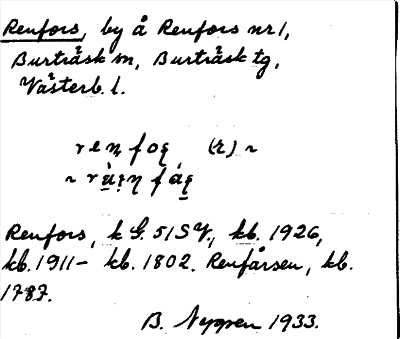 Renfors, by å Renfors nr 1,
Burträsk sn, Burträsk tg,
Västerb. l.
(r) ~
Renfors, k G. 51 SV, kb. 1926,
kb. 1911 – kb. 1802. Renfårsen, kb.
1787.
B. Nyppen 1933.